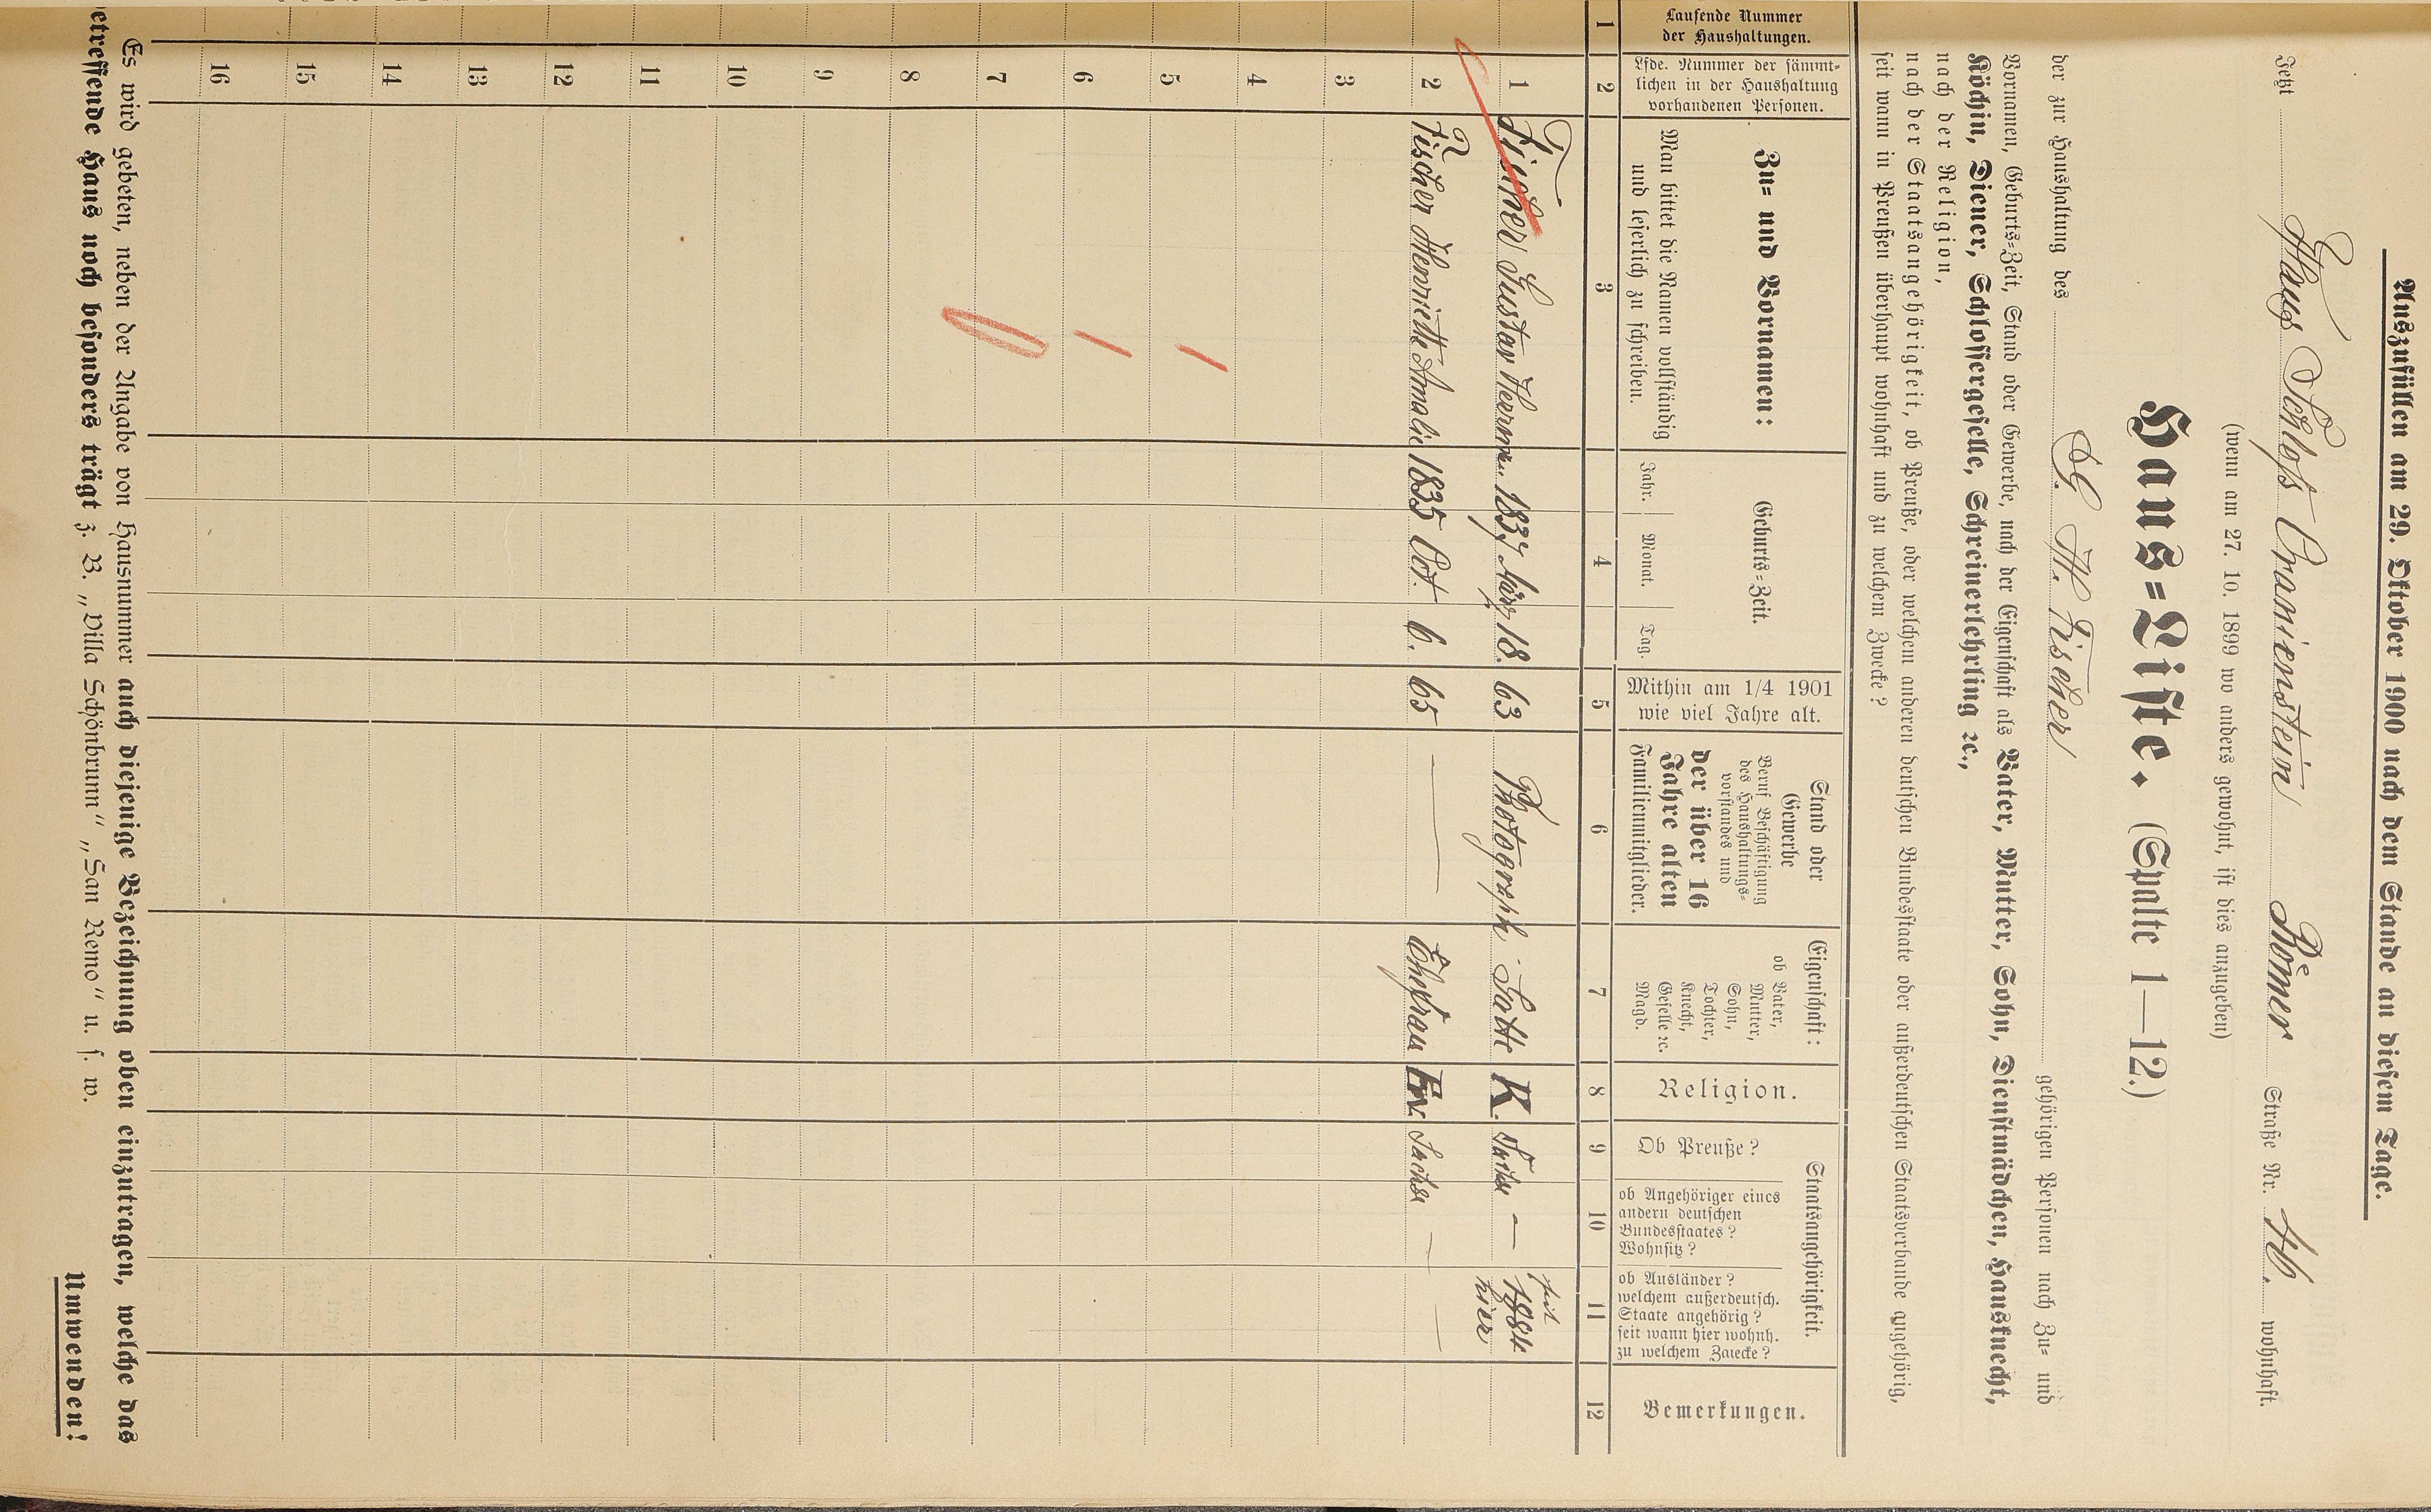 Auszufüllen am 29. Oktober 1900 nach dem Stande an diesem Tage.
Jetzt Haus Schloss Oranienstein Römer Straße Nr. 46. wohnhaft.
(wenn am 27. 10. 1899 wo anders gewohnt, ist dies anzugeben)
Haus=Liste. (Spalte 1—12.)
der zur Haushaltung des G. H. Fischer gehörigen Personen nach Zu= und
Vornamen, Geburts=Zeit, Stand oder Gewerbe, nach der Eigenschaft als Vater, Mutter, Sohn, Dienstmädchen, Hausknecht,
Köchin, Diener, Schlossergeselle, Schreinerlehrling ꝛc.,
nach der Religion,
nach der Staatsangehörigkeit, ob Preuße, oder welchem anderen deutschen Bundesstaate oder außerdeutschen Staatsverbande angehörig,
seit wann in Preußen überhaupt wohnhaft und zu welchem Zwecke?
Laufende Nummer
der Haushaltungen.
Lfde. Nummer der sämmt-
lichen in der Haushaltung
vorhandenen Personen.
Zu= und Vornamen:
Man bittet die Namen vollständig
und leserlich zu schreiben.
Geburts=Zeit.
Jahr. Monat. Tag.
Mithin am 1/4 1901
wie viel Jahre alt.
Stand oder
Gewerbe
Beruf Beschäftigung
des Haushaltungs-
vorstandes und
der über 16
Jahre alten
Familienmitglieder.
Eigenschaft:
ob Vater,
Mutter,
Sohn,
Tochter,
Knecht,
Geselle ꝛc.
Magd.
Religion.
Staatsangehörigkeit.
Ob Preuße?
ob Angehöriger eines
andern deutschen
Bundesstaates?
Wohnsitz?
ob Ausländer?
welchem außerdeutsch.
Staate angehörig?
seit wann hier wohnh.
zu welchem Zwecke?
Bemerkungen.
1 2 3 4 5 6 7 8 9 10 11 12
1 Fischer Gustav Herm. 1837 März 18. 63 Photograph Gatte K. Sachse — seit 1884 hier
2 Fischer Henriette Amalie 1835 Oct. 6. 65 — Ehefrau Ev. Sachse — —
3
4
5
6
7
8
9
10
11
12
13
14
15
16
Es wird gebeten, neben der Angabe von Hausnummer auch diejenige Bezeichnung oben einzutragen, welche das
etreffende Haus noch besonders trägt z. B. „Villa Schönbrunn" „San Remo" u. s. w.
Umwenden!